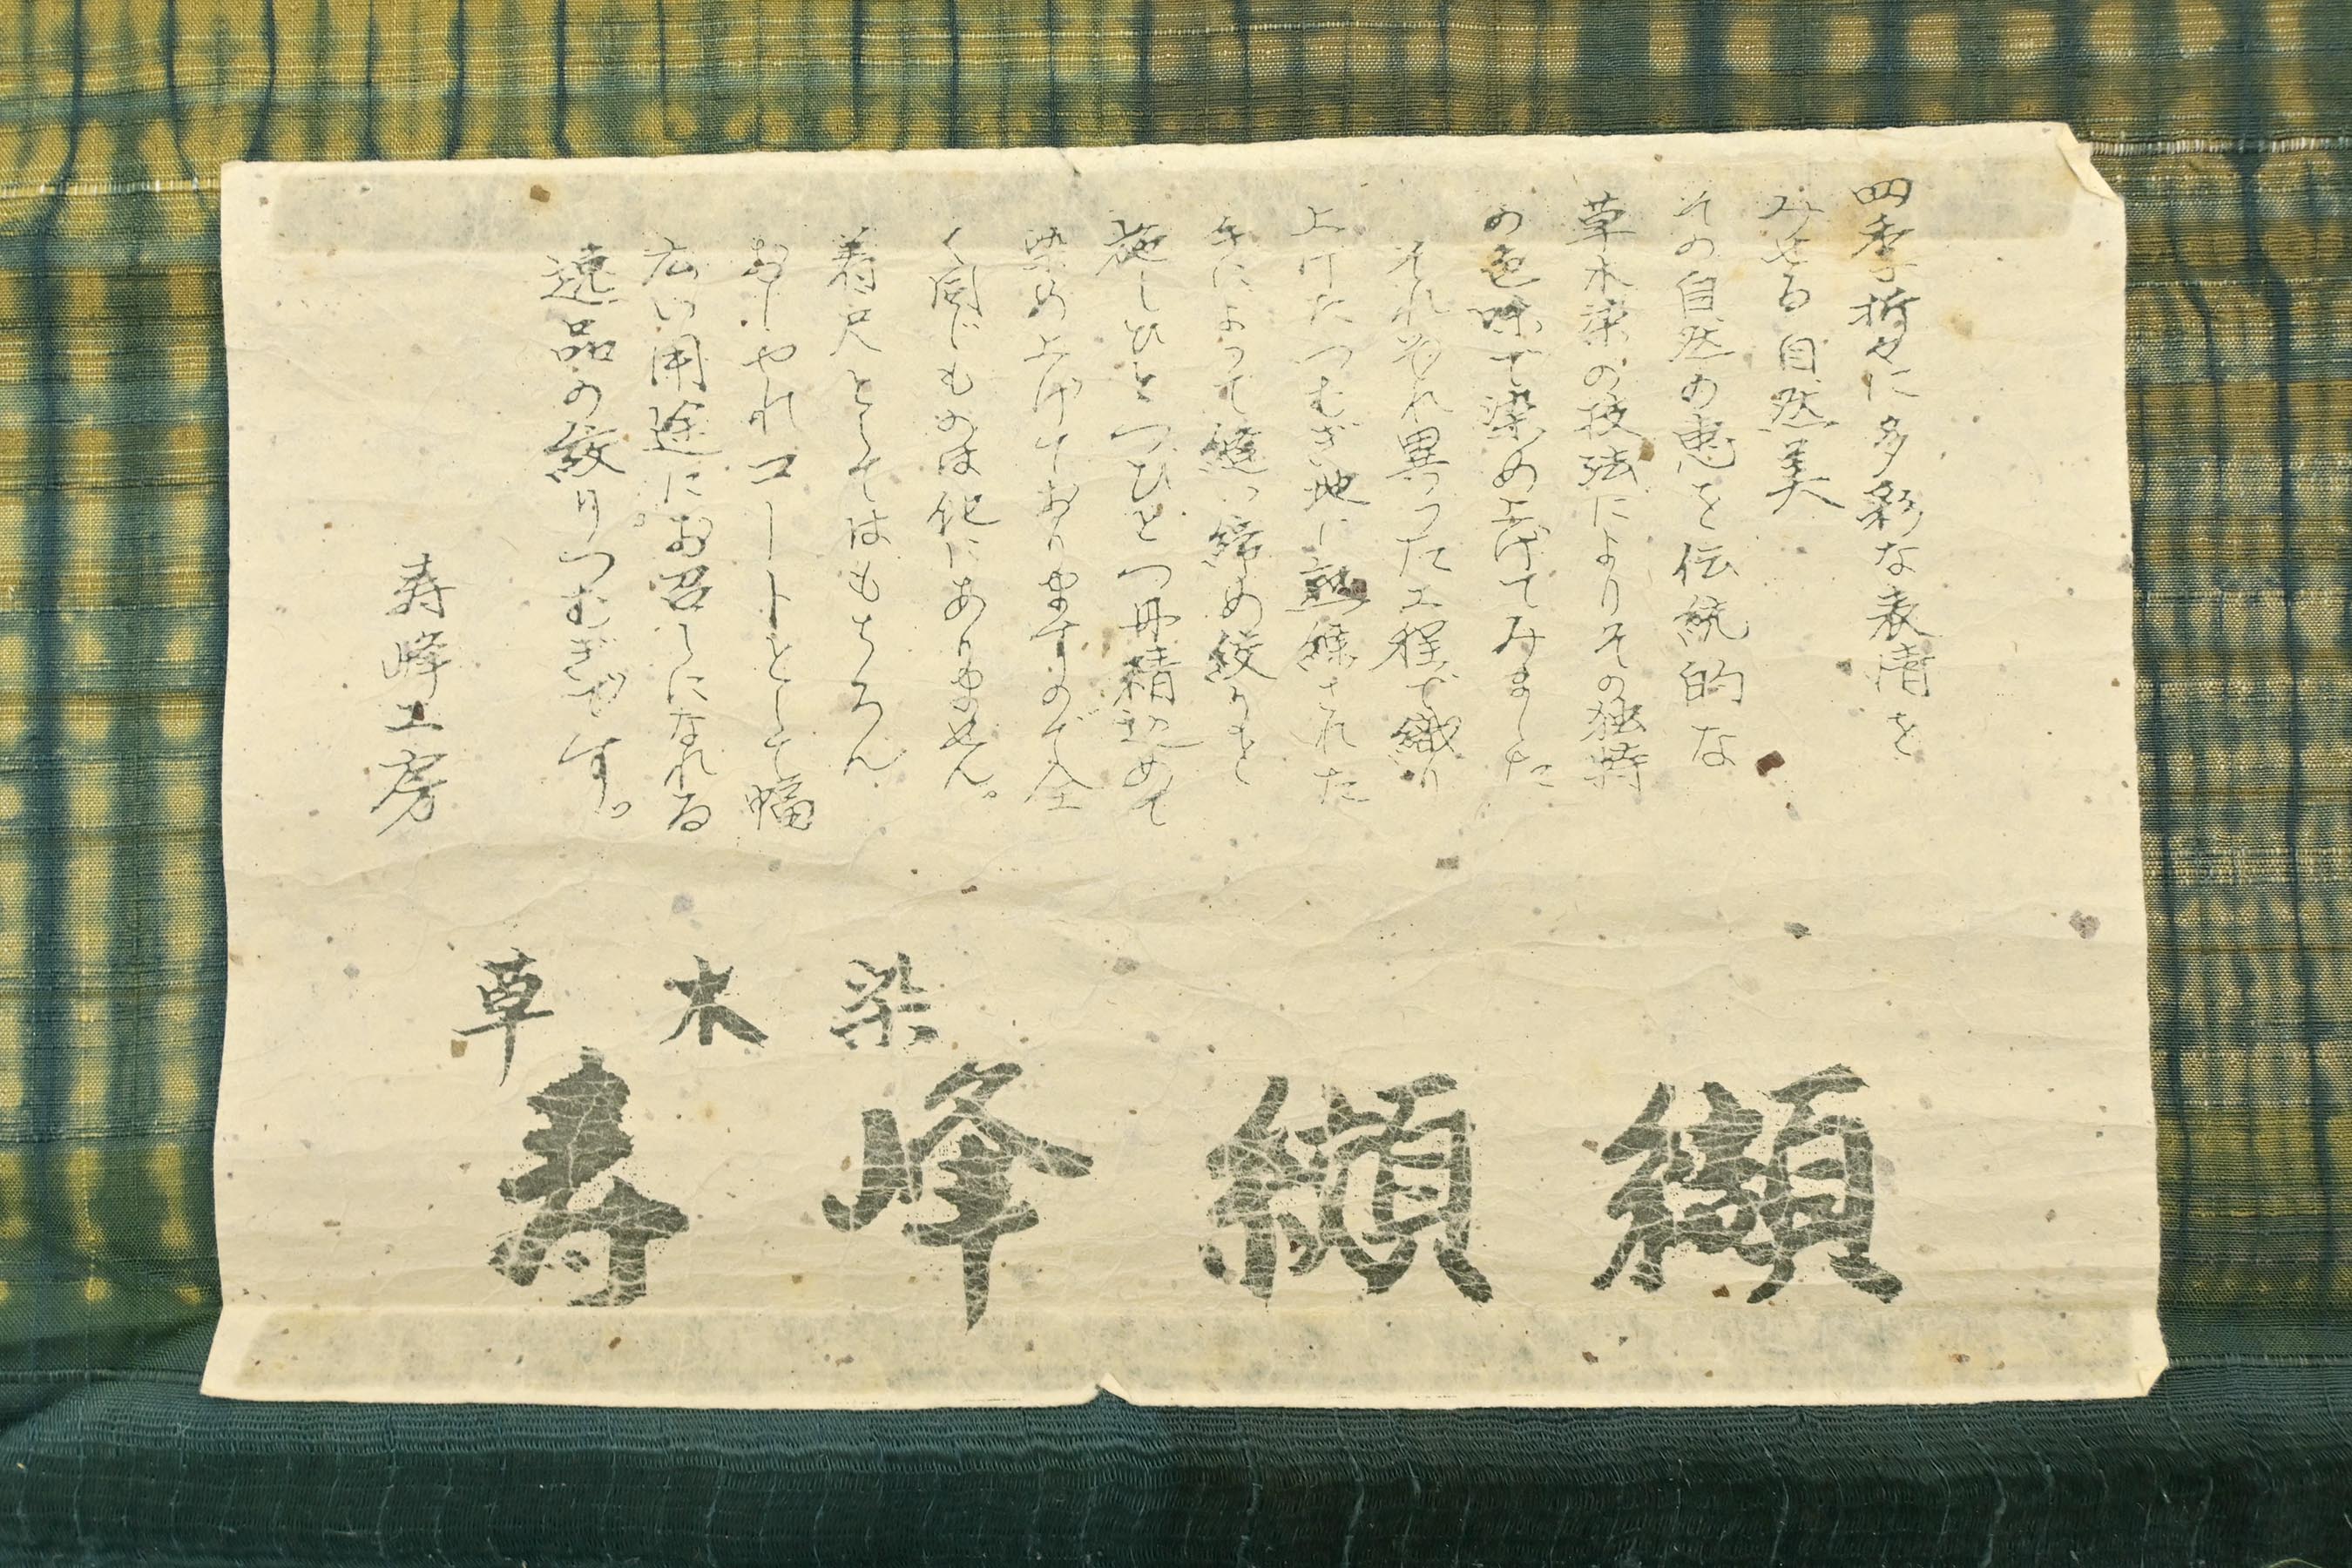 四季折々に多彩な表情を
みせる自然美
その自然の恵を伝統的な
草木染の技法によりその独特
の色味で染め上げてみました
それぞれ異った工程で織り
上げたつむぎ地に熟練された
手によって縫い締め絞りを
施しひとつひとつ丹精込めて
染め上げておりますので全
く同じものは他にありません。
着尺としてはもちろん
おしゃれコートとして幅
広い用途にお召しになれる
逸品の絞りつむぎです。
寿峰工房
草木染
寿峰纐纈